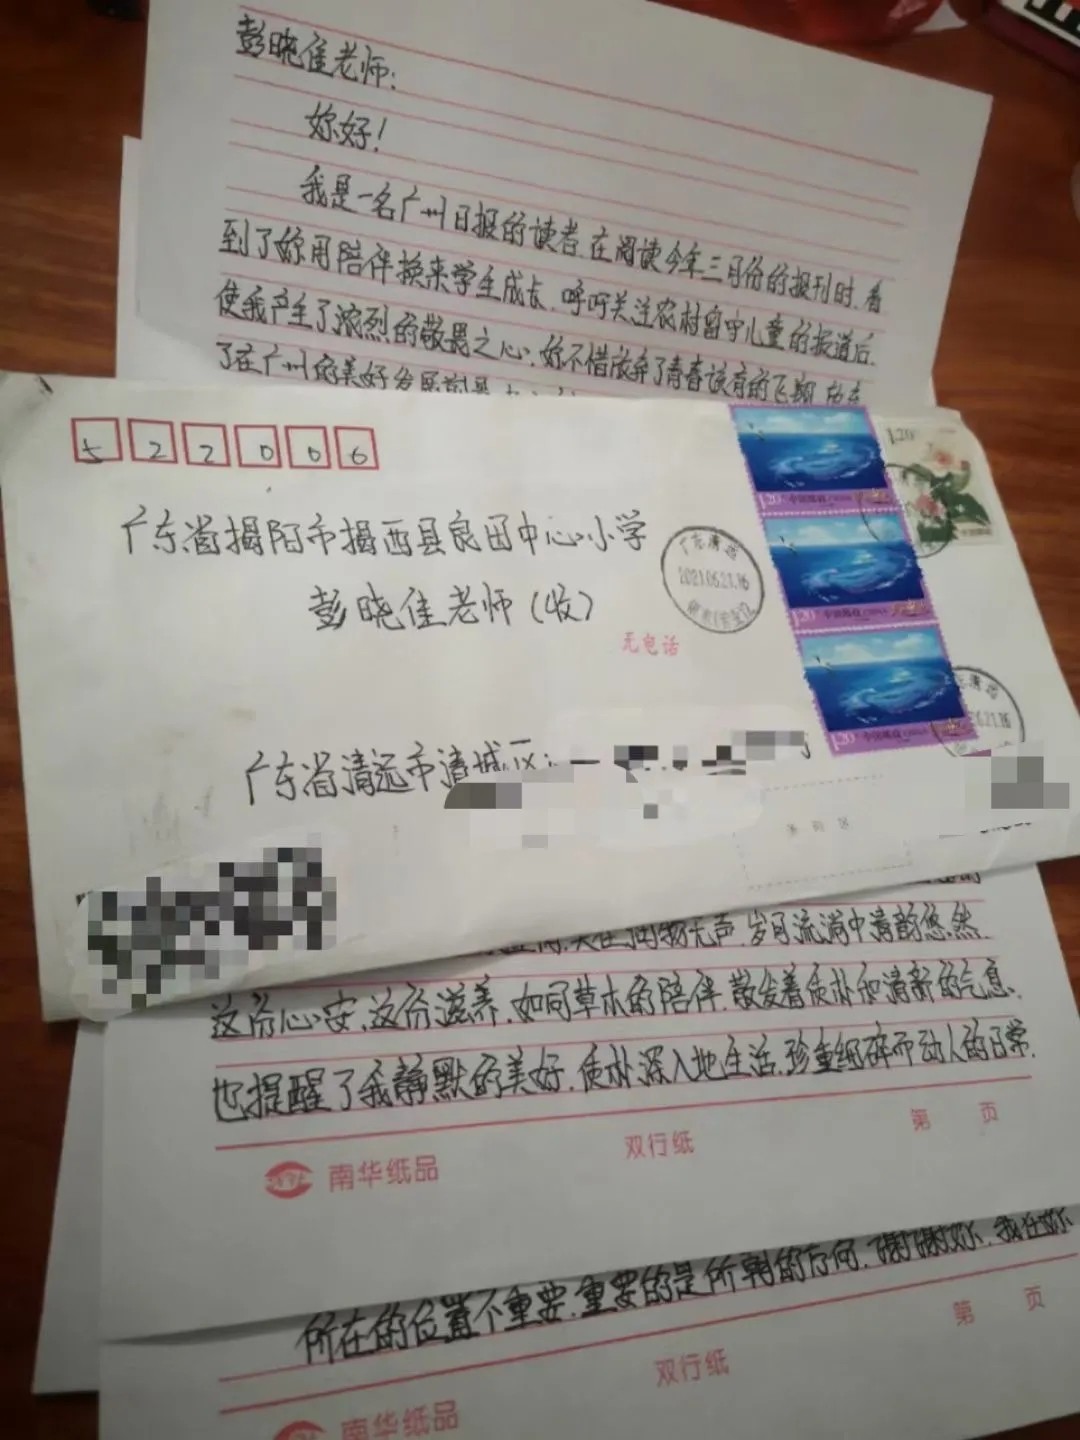 彭晓佳老师:
妳好!
我是一名广州日报的读者.在阅读今年三月份的报刊时.看
到了妳用陪伴换来学生成长.呼吁关注农村留守儿童的报道后.
使我产生了浓烈的敬畏之心.妳不惜放弃了青春该有的飞翔.放弃
了在广州的美好发展前景
522006
广东省揭阳市揭西县良田中心小学
彭晓佳老师(收)
无电话
广东清远
2021.06.21.16
1.20
中国邮政 CHINA
1.20
中国邮政 CHINA
1.20
中国邮政 CHINA
1.20
广东省清远市清城区
润物无声.岁月流淌中清韵悠然.
这份心安.这份滋养.如同草木的陪伴.散发着质朴和清新的气息.
也提醒了我静默的美好.质朴深入地生活.珍重细碎而动人的日常.
南华纸品 双行纸 第 页
所在的位置不重要.重要的是所朝的方向.谢谢妳.我在妳
南华纸品 双行纸 第 页